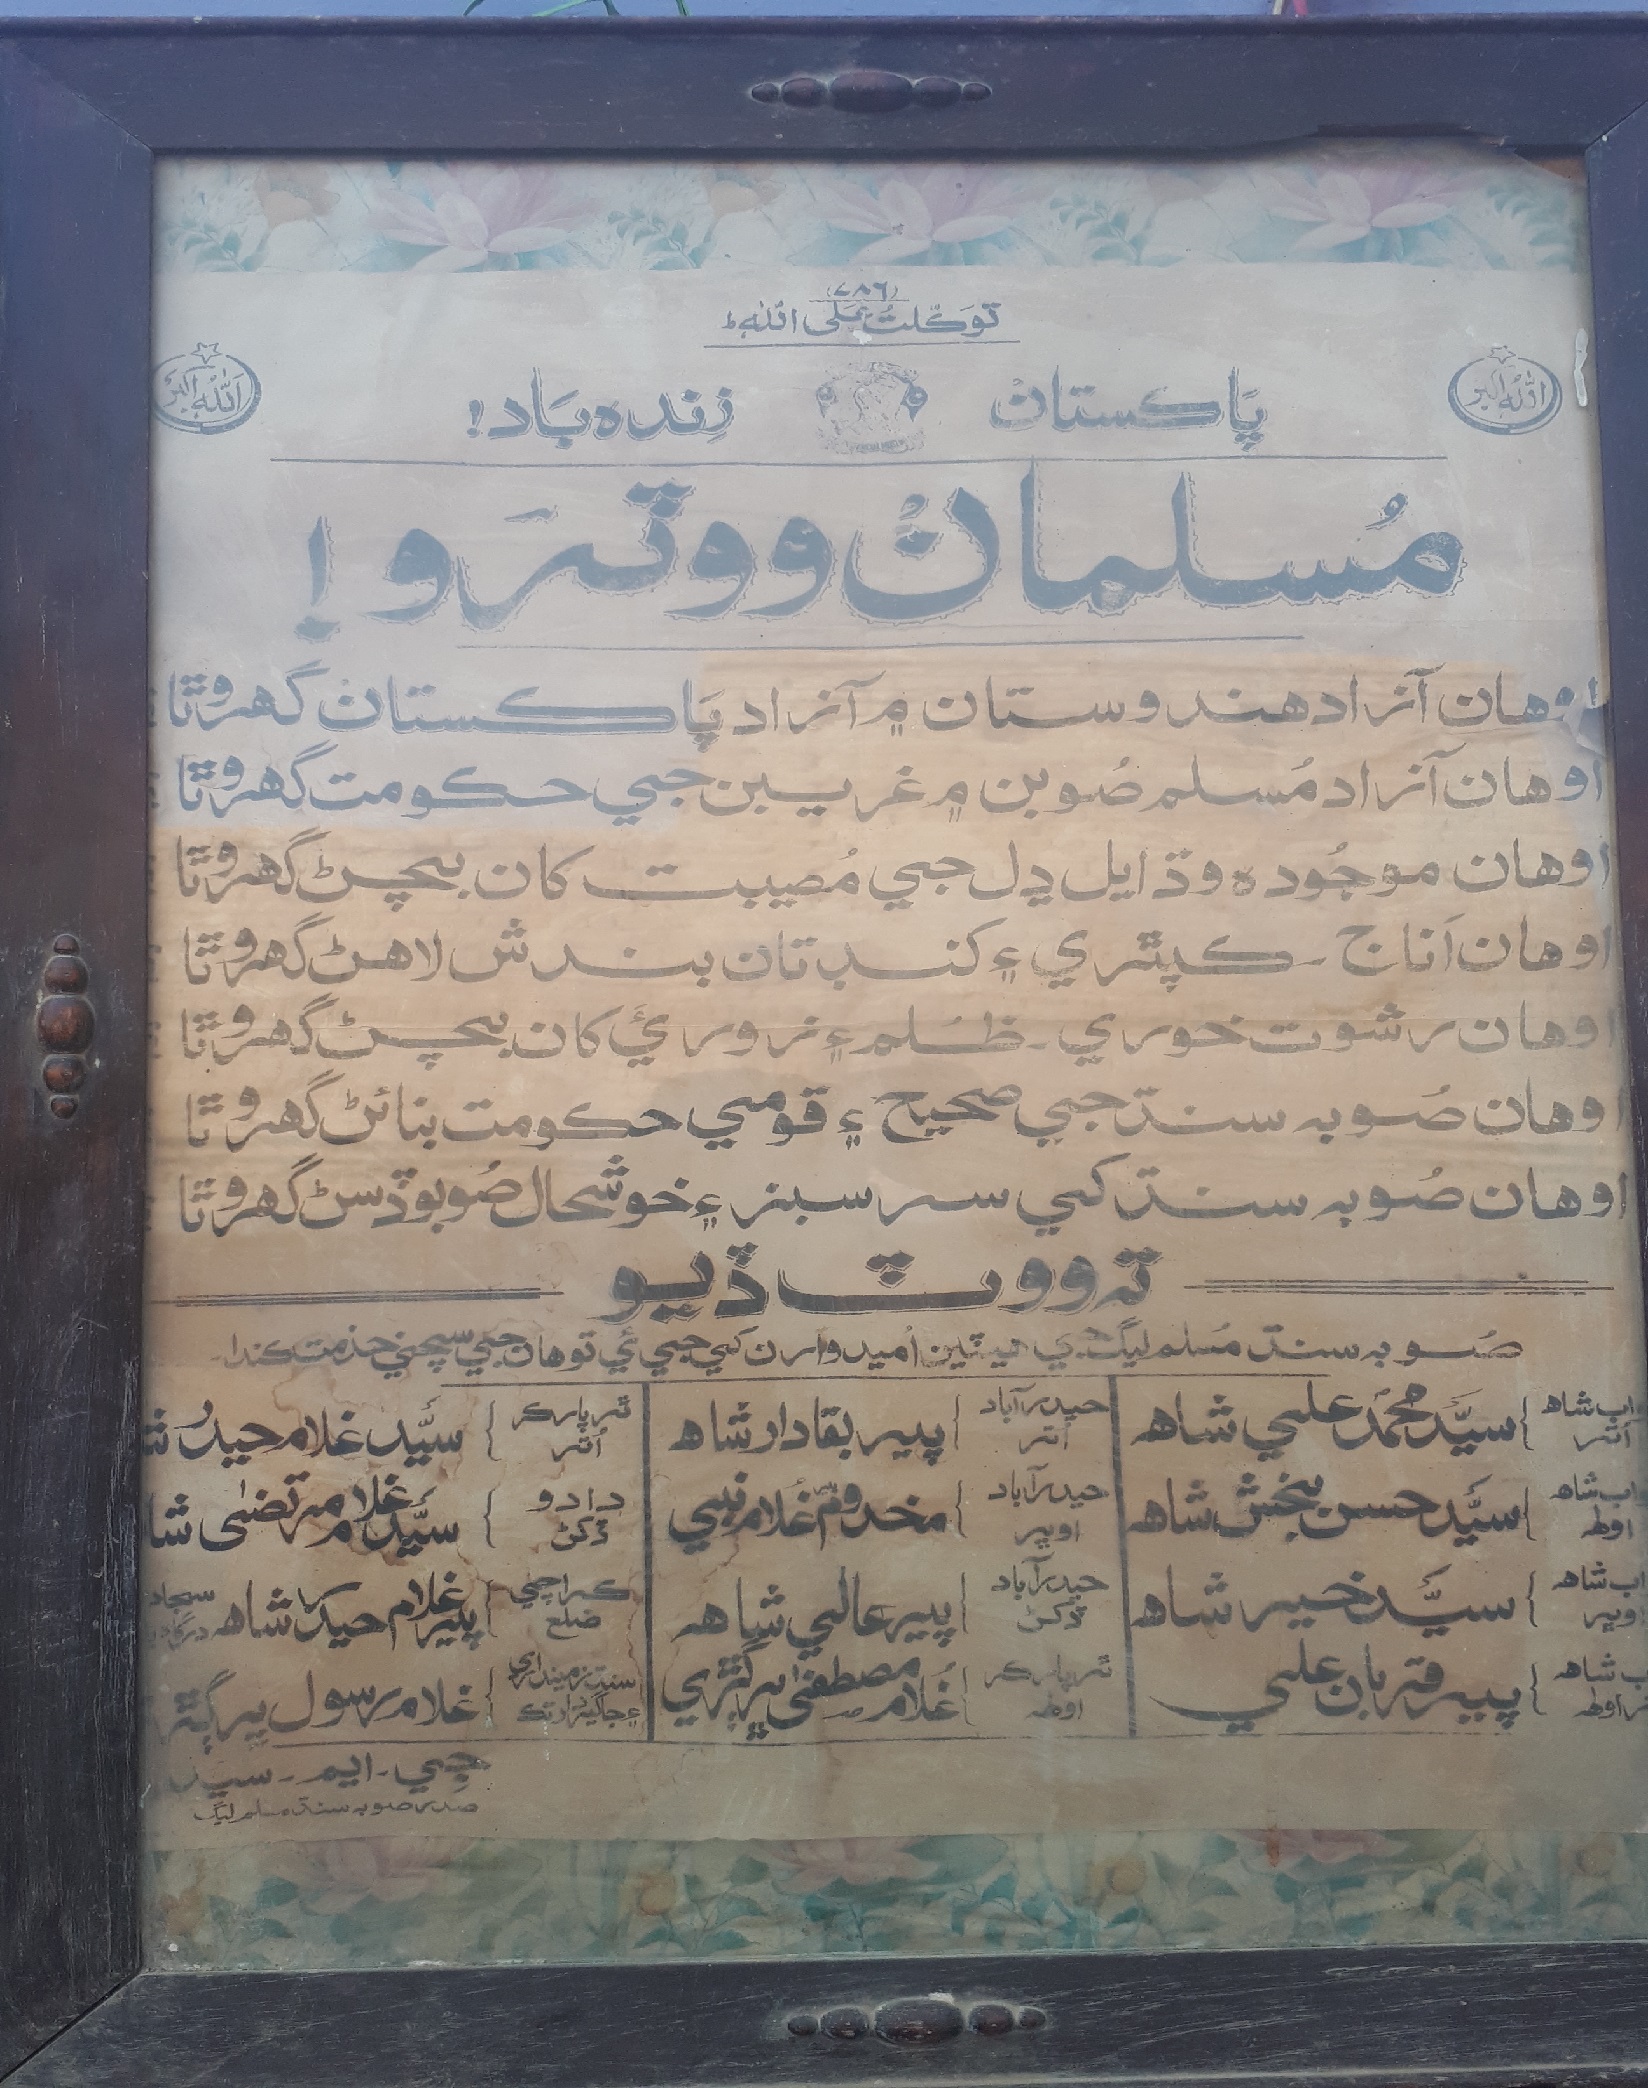 (٧٨٦)
توَڪّلتُ عَلی اللهِ ط
اَللهُ اَکبَر
اَللهُ اَکبَر
پَاڪستانُ زِنده بَاد!
مُسلمانُ ووٽرَو!
اوهان آزاد هندوستان ۾ آزاد پَاڪستانُ گهرو ٿا
اوهان آزاد مُسلم صُوبن ۾ غريبن جي حڪومت گهرو ٿا
اوهان موجُوده وڌايل ڍل جي مُصيبت کان بچڻ گهرو ٿا
اوهان اَناج - ڪپڙي ۽ کنڊ تان بندش لاهڻ گهرو ٿا
اوهان رشوت خوري - ظُلم ۽ زوريءَ کان بچڻ گهرو ٿا
اوهان صُوبہ سنڌ جي صحيح ۽ قومي حڪومت بنائڻ گهرو ٿا
اوهان صُوبہ سنڌ کي سرسبز ۽ خوشحال صُوبو ڏسڻ گهرو ٿا
تہ ووٽ ڏيو
صُوبہ سنڌ مُسلم ليگ جي هيٺين اُميدوارن کي جي ئي توهان جي سچي خدمت ڪندا
اب شاهہ اُتر } سيَّد محمّد علي شاهہ
حيدرآباد اُتر } پير بقادار شاهہ
ٿرپارڪر اُتر } سيَّد غلام حيدر
اب شاهہ اولهہ } سيَّد حسن بخش شاهہ
حيدرآباد اوڀر } مخدوم غلام نبي
دادو ڏکڻ } سيَّد غلام مرتضيٰ
اب شاهہ } سيَّد خير شاهہ
حيدرآباد ڏکڻ } پير عالي شاهہ
ڪراچي ضلع } پير غلام حيدر شاهہ
شاهہ اولهہ } پير قربان علي
ٿرپارڪر اولهہ } غلام مصطفيٰ ڀرڳڙي
سنڌ زمينداري } غلام رسول
جي - ايم - سيد
صدر صوبہ سنڌ مسلم ليگ